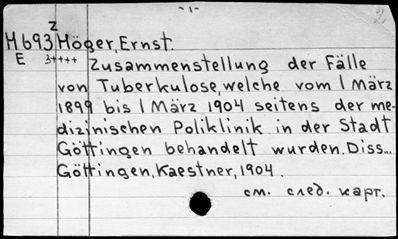 -1-
Z
M693 Möger, Ernst.
E 3++++ Zusammenstellung der Fälle
von Tuberkulose, welche vom 1 März
1899 bis 1 März 1904 seitens der me-
dizinischen Poliklinik in der Stadt
Göttingen behandelt wurden. Diss...
Göttingen, Kaestner, 1904.
см. след. карт.